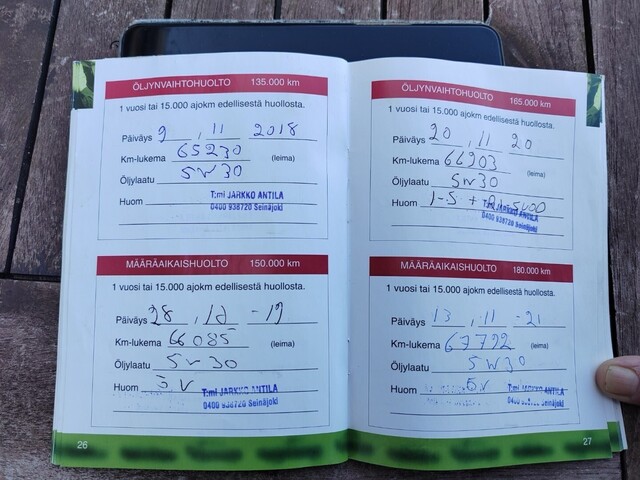 ÖLJYNVAIHTOHUOLTO 135.000 km
1 vuosi tai 15.000 ajokm edellisestä huollosta.
Päiväys 9 , 11 2018
Km-lukema 65230 (leima)
Öljylaatu 5w30
Huom T:mi JARKKO ANTILA
0400 938720 Seinäjoki
MÄÄRÄAIKAISHUOLTO 150.000 km
1 vuosi tai 15.000 ajokm edellisestä huollosta.
Päiväys 28 , 12 -19
Km-lukema 66085 (leima)
Öljylaatu 5w30
Huom S.V T:mi JARKKO ANTILA
0400 938720 Seinäjoki
26
ÖLJYNVAIHTOHUOLTO 165.000 km
1 vuosi tai 15.000 ajokm edellisestä huollosta.
Päiväys 20 , 11 20
Km-lukema 66903 (leima)
Öljylaatu 5w30
Huom T:mi JARKKO ANTILA
0400 938720 Seinäjoki
MÄÄRÄAIKAISHUOLTO 180.000 km
1 vuosi tai 15.000 ajokm edellisestä huollosta.
Päiväys 13 , 11 -21
Km-lukema 67792 (leima)
Öljylaatu 5W30
Huom S.V T:mi JARKKO ANTILA
Seinäjoki
27